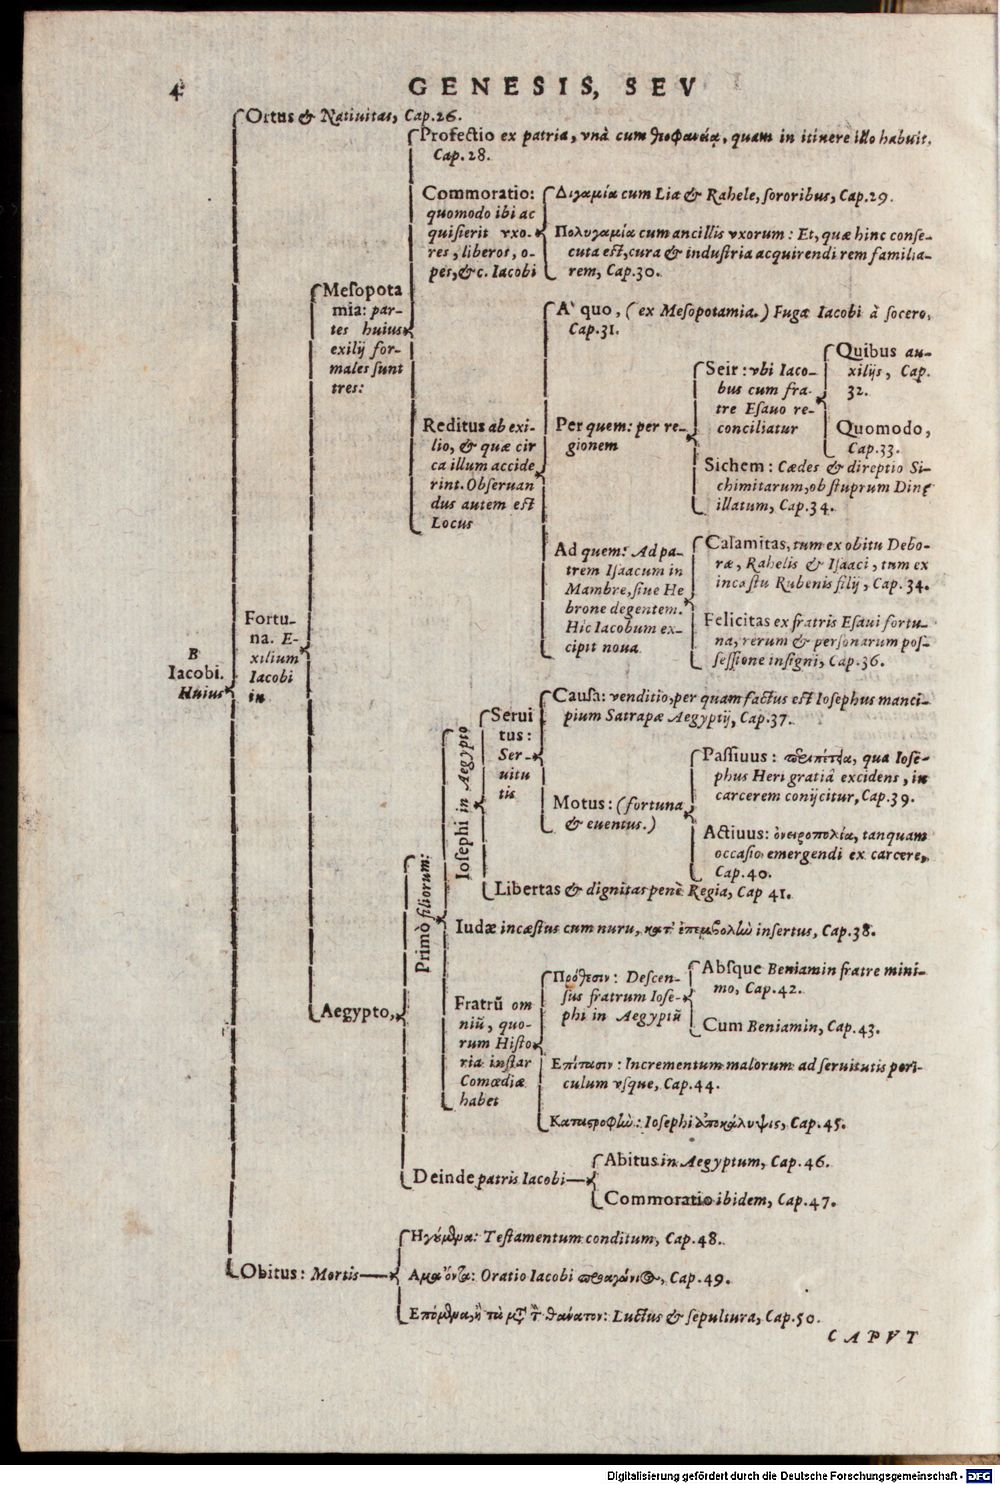 4
GENESIS, SEV
Ortus & Natiuitas, Cap.26.
Profectio ex patria, vnà cum θεοφανείᾳ, quam in itinere illo habuit,
Cap.28.
Commoratio:
quomodo ibi ac
quisierit vxo-
res, liberos, o-
pes, &c. Iacobi
Διγαμία cum Lia & Rahele, sororibus, Cap.29.
Πολυγαμία cum ancillis vxorum: Et, quæ hinc conse-
cuta est, cura & industria acquirendi rem familia-
rem, Cap.30.
Mesopota
mia: par-
tes huius
exilij for-
males sunt
tres:
A' quo, (ex Mesopotamia.) Fuga Iacobi à socero,
Cap.31.
Reditus ab exi-
lio, & quæ cir
ca illum accide
rint. Obseruan
dus autem est
Locus
Per quem: per re-
gionem
Seir: vbi Iaco-
bus cum fra-
tre Esauo re-
conciliatur
Quibus au-
xilijs, Cap.
32.
Quomodo,
Cap.33.
Sichem: Cædes & direptio Si-
chimitarum, ob stuprum Dinę
illatum, Cap.34.
Ad quem: Ad pa-
trem Isaacum in
Mambre, siue He
brone degentem.
Hic Iacobum ex-
cipit noua
Calamitas, tum ex obitu Debo-
ræ, Rahelis & Isaaci, tum ex
incestu Rubenis filij, Cap.34.
Felicitas ex fratris Esaui fortu-
na, rerum & personarum pos-
sessione insigni, Cap.36.
B
Iacobi.
Huius
Fortu-
na. E-
xilium
Iacobi
in
Aegypto,
Primò filiorum:
Iosephi in Aegypto
Serui
tus:
Ser-
uitu
tis
Causa: venditio, per quam factus est Iosephus manci-
pium Satrapæ Aegyptij, Cap.37.
Motus: (fortuna
& euentus.)
Passiuus: περιπέτεια, qua Iose-
phus Heri gratiâ excidens, in
carcerem conijcitur, Cap.39.
Actiuus: ὀνειροπολία, tanquam
occasio emergendi ex carcere,
Cap.40.
Libertas & dignitas penè Regia, Cap 41.
Iudæ incæstus cum nuru, κατ' ἐπεμβολὼ insertus, Cap.38.
Fratrũ om
niũ, quo-
rum Histo
ria instar
Comœdiæ
habet
Πρόθεσιν: Descen-
sus fratrum Iose-
phi in Aegyptũ
Absque Beniamin fratre mini-
mo, Cap.42.
Cum Beniamin, Cap.43.
Επίτασιν: Incrementum malorum ad seruitutis peri-
culum vsque, Cap.44.
Καταστροφὼ: Iosephi ἀποκάλυψις, Cap.45.
Deinde patris Iacobi
Abitus in Aegyptum, Cap.46.
Commoratio ibidem, Cap.47.
Obitus: Mortis
Ηγούμενα: Testamentum conditum, Cap.48.
Αμα ὄντα: Oratio Iacobi Cap.49.
Επόμενα, ἢ τὰ μετὰ τ θάνατον: Luctus & sepultura, Cap.50.
CAPVT
Digitalisierung gefördert durch die Deutsche Forschungsgemeinschaft - DFG